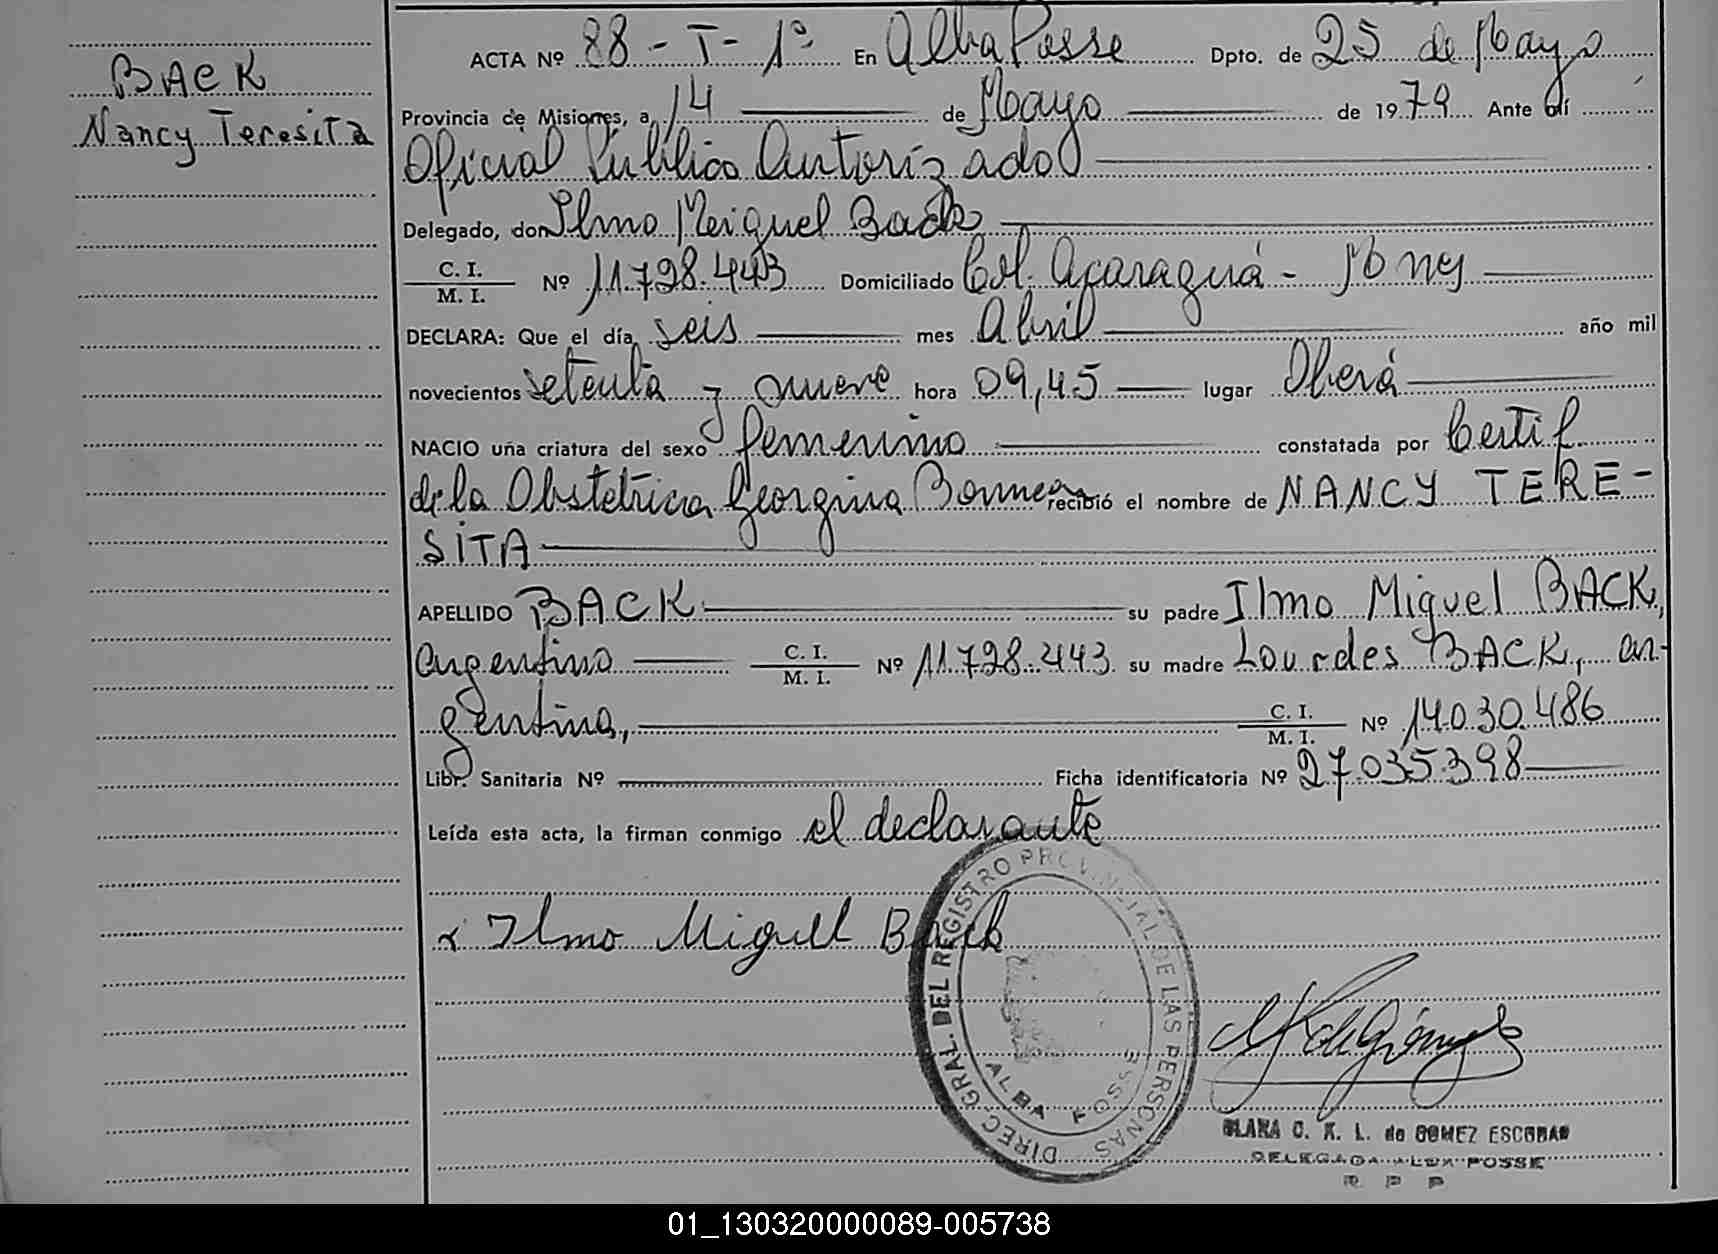 BACK
Nancy Teresita
ACTA Nº 88 - T - 1º En Alba Posse Dpto. de 25 de Mayo
Provincia de Misiones, a 14 de Mayo de 1979 Ante mí
Oficial Público Autorizado
Delegado, don Ilmo Meiguel Back
C. I. / M. I. Nº 11.798.443 Domiciliado Col. Acaraguá - Mnes
DECLARA: Que el día seis mes Abril año mil
novecientos setenta y nueve hora 09,45 lugar Oberá
NACIO una criatura del sexo femenino constatada por Certif
de la Obstetrica Georgina recibió el nombre de NANCY TERE-
SITA
APELLIDO BACK su padre Ilmo Miguel BACK,
argentino C. I. / M. I. Nº 11.798.443 su madre Lourdes BACK, ar-
gentina, C. I. / M. I. Nº 14.030.486
Libr. Sanitaria Nº Ficha identificatoria Nº 27.035.398
Leída esta acta, la firman conmigo el declarante
x Ilmo Miguel Back
DIREC. GRAL. DEL REGISTRO PROVINCIAL DE LAS PERSONAS
ALBA POSSE
CLARA C. K. L. de GOMEZ ESCOBAR
DELEGADA ALBA POSSE
R P P
01_130320000089-005738